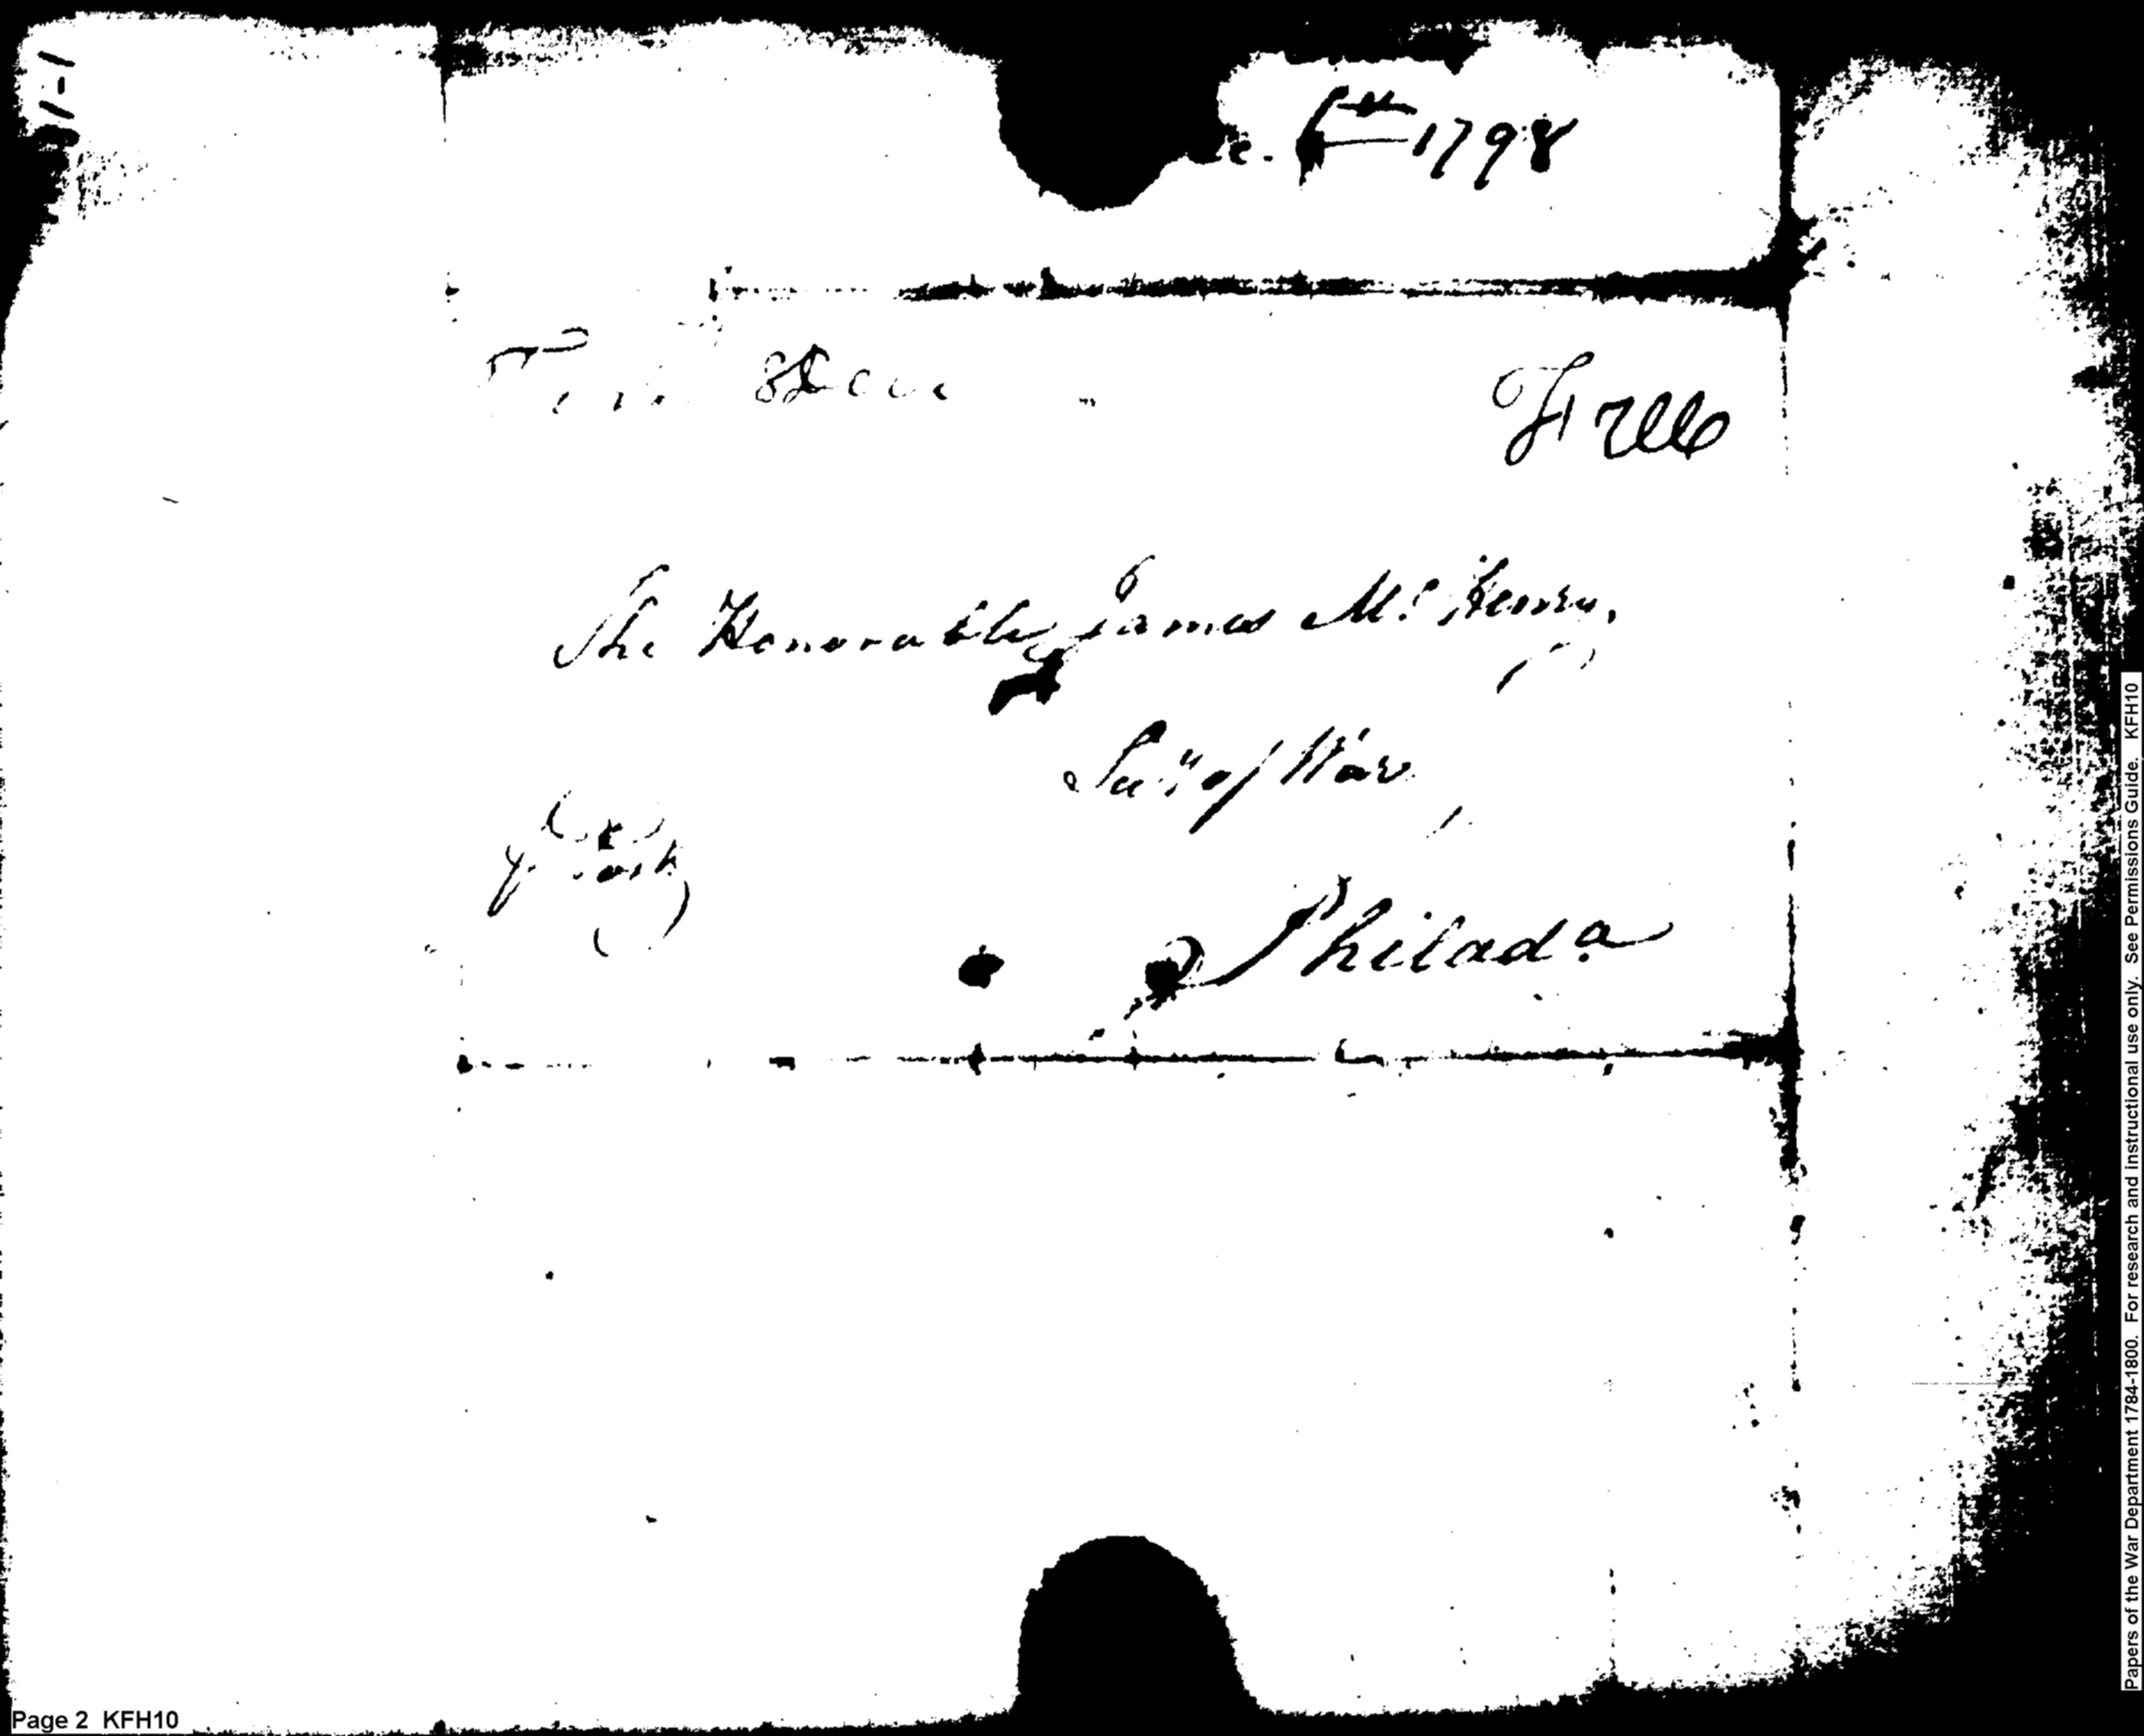 1798
8 Dec
Free
The Honorable James McHenry,
Secy of War
Philada
Page 2 KFH10
Papers of the War Department 1784-1800. For research and instructional use only. See Permissions Guide. KFH10